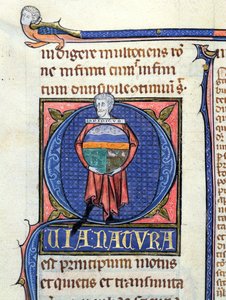 indigere multociens rõ
ne infiniti cum in infini
tum diuisibile
QUIA NATVRA
est principium motus
et quietis et transmuta